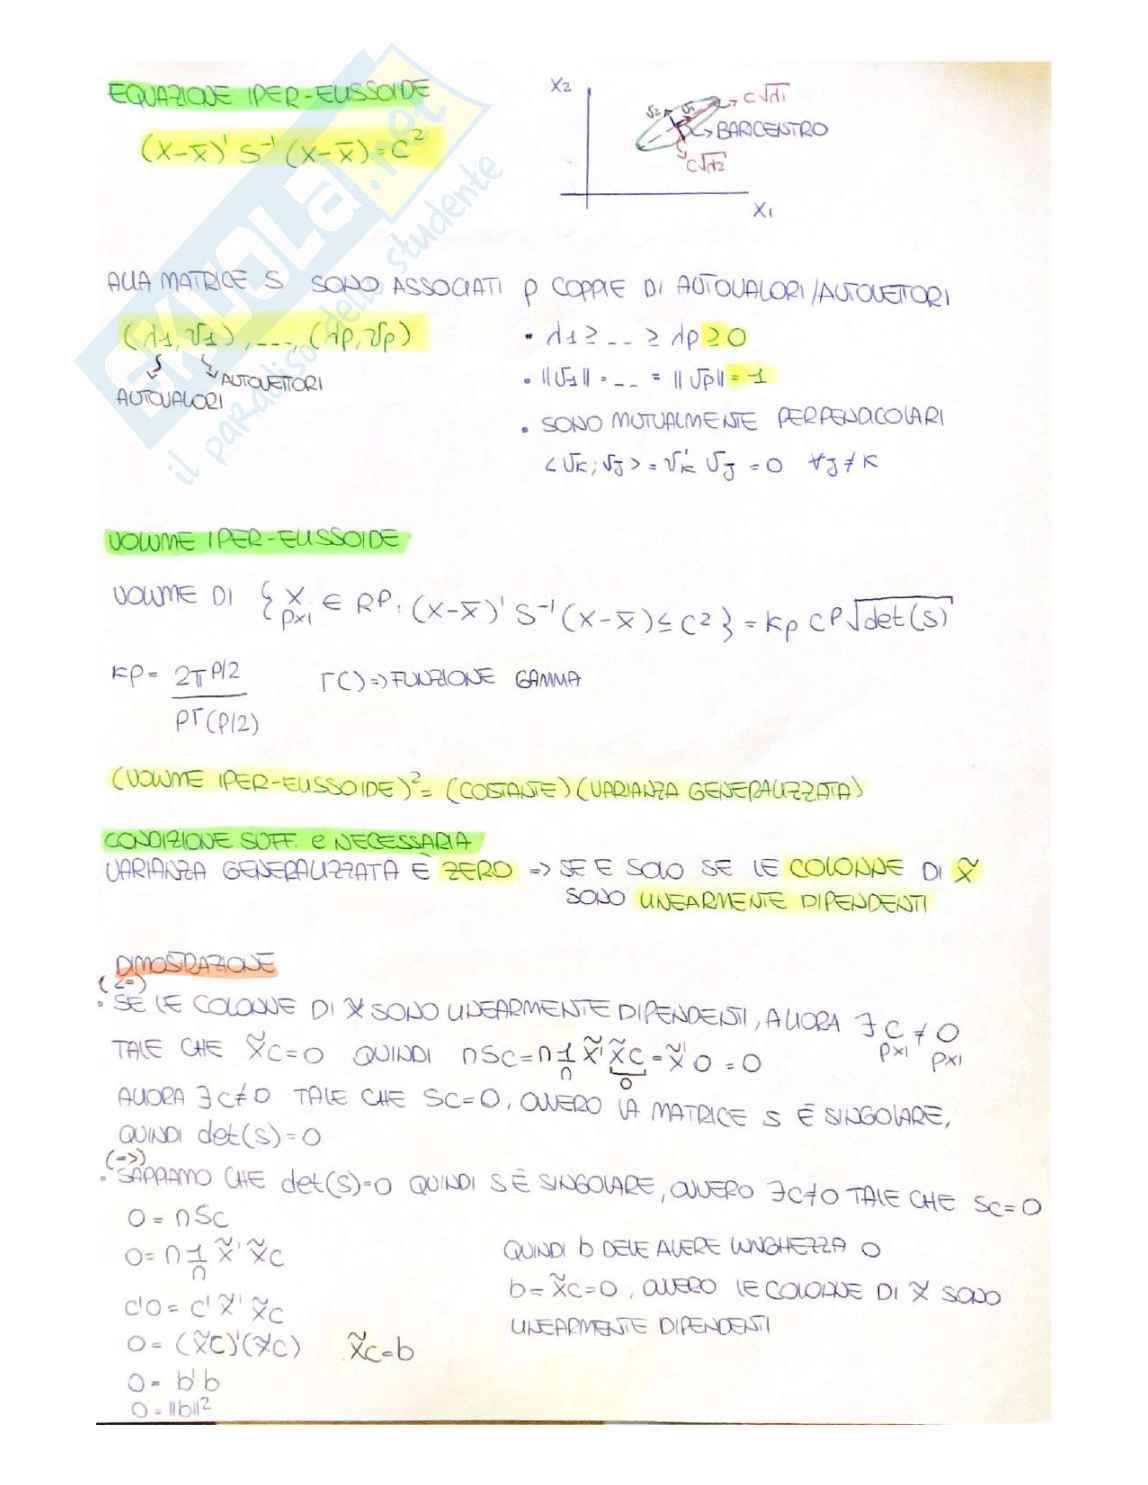 EQUAZIONE IPER-ELLISSOIDE
(X-x̄)' S⁻¹ (X-x̄) = C²
X2
V2 V1
C√λ1
BARICENTRO
C√λ2
X1
SKUOLA.net
il paradiso dello studente
ALLA MATRICE S SONO ASSOCIATI P COPPIE DI AUTOVALORI/AUTOVETTORI
(λ1, V1), ..., (λP, VP)
AUTOVETTORI
AUTOVALORI
• λ1 ≥ -- ≥ λP ≥ 0
• ||V1|| = -- = ||VP|| = 1
• SONO MUTUALMENTE PERPENDICOLARI
<VK; VJ> = V'K VJ = 0 ∀J ≠ K
VOLUME IPER-ELLISSOIDE
VOLUME DI { X px1 ∈ RP: (X-x̄)' S⁻¹ (X-x̄) ≤ C² } = KP CP √det(S)
KP = 2π P/2 / PΓ(P/2) Γ() => FUNZIONE GAMMA
(VOLUME IPER-ELLISSOIDE)² = (COSTANTE) (VARIANZA GENERALIZZATA)
CONDIZIONE SUFF. e NECESSARIA
VARIANZA GENERALIZZATA È ZERO => SE E SOLO SE LE COLONNE DI X̃
SONO LINEARMENTE DIPENDENTI
DIMOSTRAZIONE
(<=)
• SE LE COLONNE DI X̃ SONO LINEARMENTE DIPENDENTI, ALLORA ∃ C px1 ≠ 0 px1
TALE CHE X̃C=0 QUINDI nSC = n 1/n X̃' X̃C = X̃' 0 = 0
0
ALLORA ∃C≠0 TALE CHE SC=0, OVVERO LA MATRICE S È SINGOLARE,
QUINDI det(S)=0
(=>)
• SAPPIAMO CHE det(S)=0 QUINDI S È SINGOLARE, OVVERO ∃C≠0 TALE CHE SC=0
0 = nSC
0 = n 1/n X̃' X̃C
C'0 = C' X̃' X̃C
0 = (X̃C)'(X̃C) X̃C=b
0 = b'b
0 = ||b||²
QUINDI b DEVE AVERE LUNGHEZZA 0
b = X̃C=0, OVVERO LE COLONNE DI X̃ SONO
LINEARMENTE DIPENDENTI